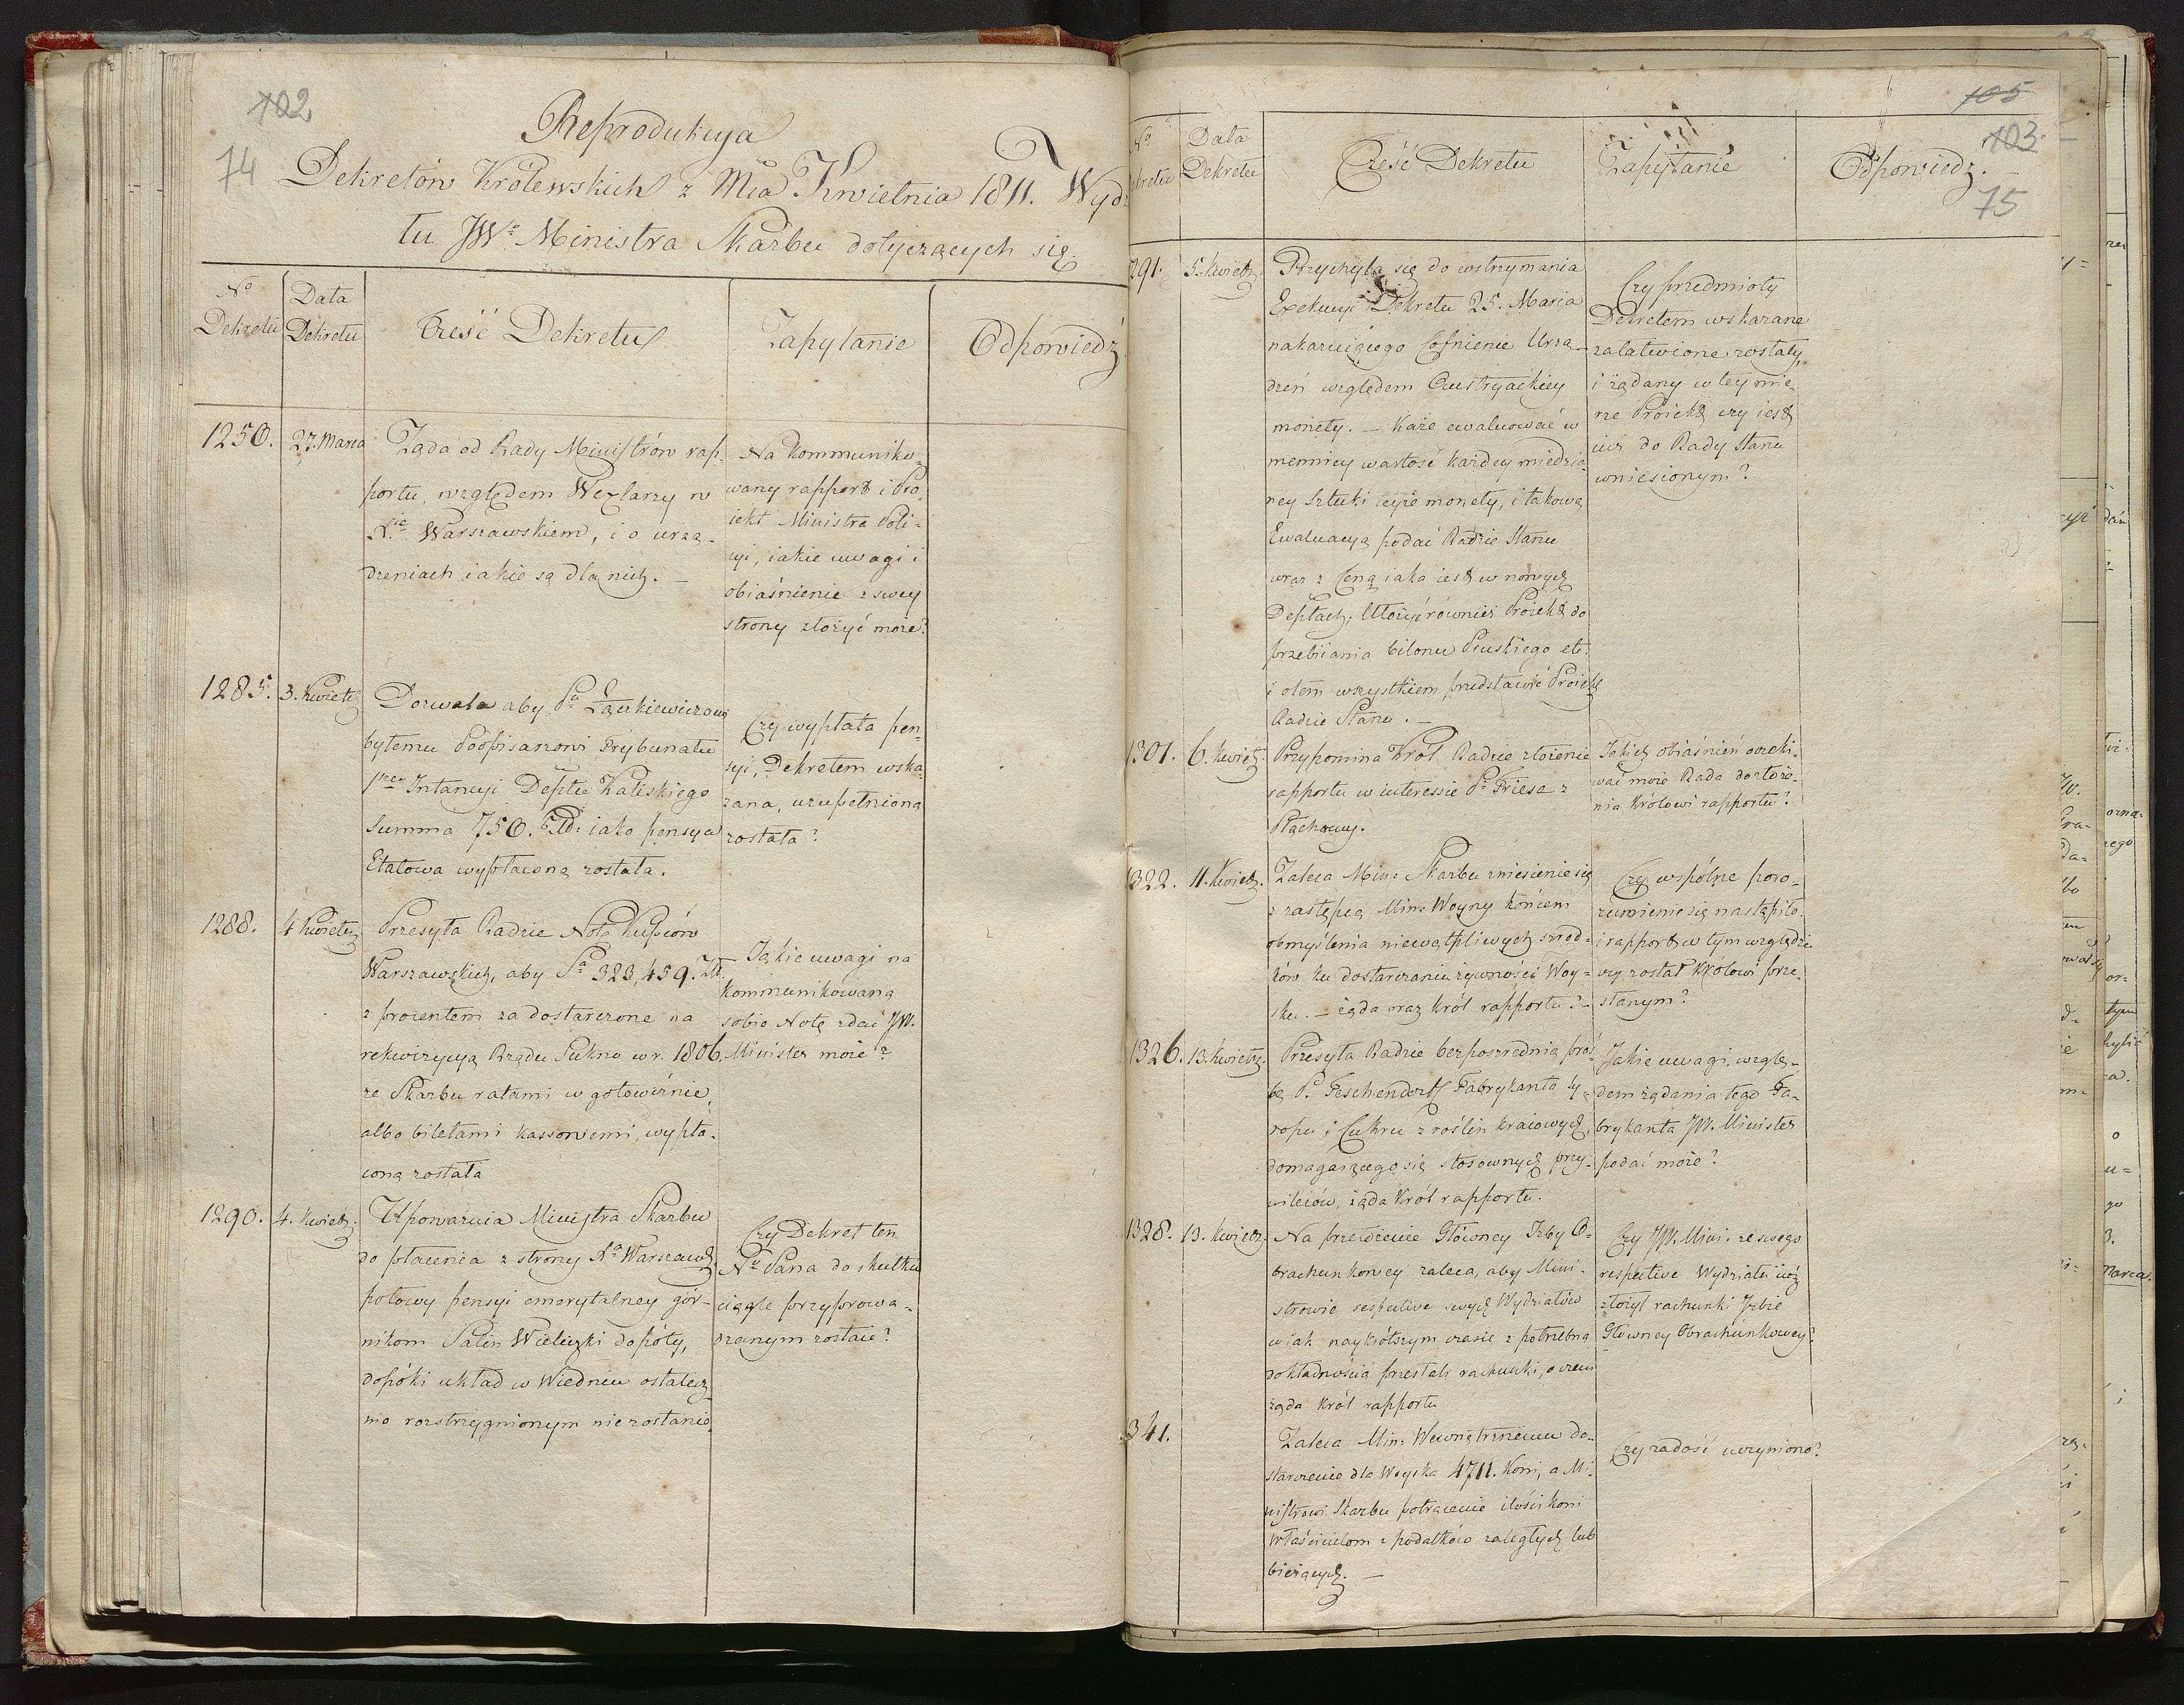 102
74
Reprodukcya
Dekretów Królewskich z Mca Kwietnia 1811. Wyd
tu JWo Ministra Skarbu dotyczących się.
No Dekretu
Data Dekretu
Treść Dekretu
Zapytanie
Odpowiedź
1250.
27. Marca
Żąda od Rady Ministrów rap-
portu, względem Wexlarzy w
Xie Warszawskiem, i o urzą-
dzeniach iakie są dla nich. —
Na kommuniko-
wany rapport i Pro-
iekt Ministra Poli-
cyi, iakie uwagi i
obiaśnienie z swey
strony złożyć może?
1285.
3. Kwietn
Dozwala aby Pu Łączkiewiczowi
byłemu Podpisarzowi Trybunału
Intancyi Deptu Kaliskiego
Summa 750. Złł: iako pensya
Etatowa wypłaconą została.
Czy wypłata pen-
syi, Dekretem wska-
zana, uzupełnioną
została?
1288.
4 Kwietn
Przesyła Radzie Notę Kupców
Warszawskich, aby Sa 323,459. Zł.
z procentem za dostarczone na
rekwizycyą Rządu Sukno w r. 1806.
ze Skarbu ratami w gotowiźnie,
albo biletami kassowemi, wypła-
coną została
Jakie uwagi na
kommunikowaną
sobie Notę zdać JW.
Minister może?
1290.
4. Kwietn.
Upoważnia Ministra Skarbu
do płacenia z strony Xa Warszaw
połowy pensyi emerytalney gór-
nikom Salin Wieliczki dopóty,
dopóki układ w Wiedniu ostatecz-
nie rozstrzygnionym nie zostanie.
Czy Dekret ten
No Pana do skutku
ciągle przyprowa-
dzanym zostaie?
105
103.
75
No
kretu
Data
Dekretu
Treść Dekretu
Zapytanie
Odpowiedz.
291.
5. Kwietn
Przychyla się do wstrzymania
Exekucyi Dekretu 25. Marca
nakazuiącego Cofnienie Urzą-
dzeń względem Austryackiey
monety. — Każe ewaluować w
mennicy wartość każdey miedzia-
ney Sztuki teyże monety, i takową
Ewaluacyą podać Radzie Stanu
wraz z Ceną iaka iest w nowych
Deptach; Ułożyć również Proiekt do
przebiiania bilonu Pruskiego etc.
i o tem wszystkiem przedstawić Proiekt
Radzie Stanu. —
Czy przedmioty
Dekretem wskazane
załatwione zostały,
i żądany w tey mie-
rze Proiekt czy iest
iuż do Rady Stanu
wniesionym?
1301.
6. Kwietn.
Przypomina Król Radzie złożenie
rapportu w interessie Pa Friese z
Jakich obiaśnień oczeki-
wać może Rada do złoże-
nia Królowi rapportu?
1322.
11. Kwietn.
Zaleca Min: Skarbu zniesienie się
z zastępcą Min: Woyny końcem
obmyślenia niewątpliwych srod-
ków ku dostarczaniu żywności Woy-
sku. — żąda oraz Król rapportu? —
Czy wspólne poro-
zumienie się nastąpiło.
i rapport w tym względzie
czy został Królowi prze-
słanym?
1326.
13. Kwietn.
Przesyła Radzie bezpośrednią proś-
bę P. Feschendorff Fabrykanta Sy-
ropu i Cukru z roślin kraiowych,
domagaiącego się stosownych przy-
wileiów, żąda Król rapportu.
Jakie uwagi, wzglę-
dem żądania tego Fa-
brykanta JW. Minister
podać może?
1328.
13. Kwietn.
Na przełożenie Główney Izby O-
brachunkowey zaleca, aby Mini-
strowie respective swych Wydziałów
w iak naykrótszym czasie z potrzebną
dokładnością przesłali rachunki, o czem
żąda Król rapportu
Czy JW. Mini. ze swego
respective Wydziału iuż
złożył rachunki Izbie
Główney Obrachunkowey?
341.
Zaleca Min: Wewnętrznemu do-
starczenie dla Woyska 4711. Koni, a Mi-
nistrowi Skarbu potrącenie ilości koni
Właścicielom z podatków zaległych lub
bieżących. —
Czy zadość uczyniono?